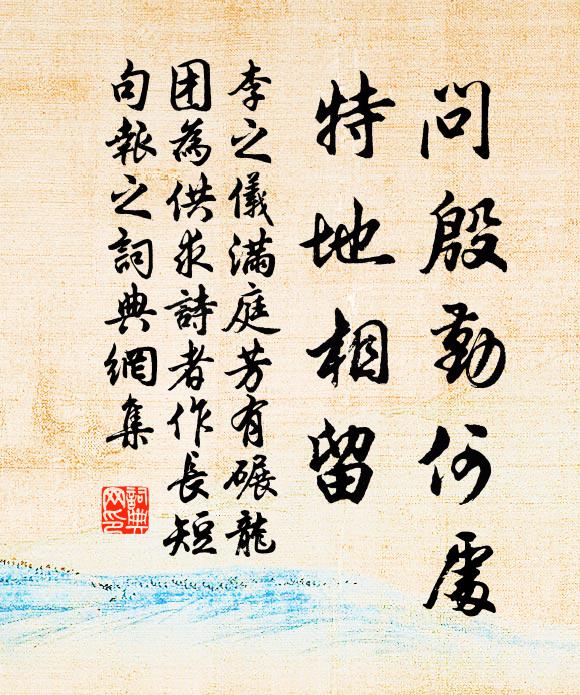 問殷勤何處
特地相留
李之儀滿庭芳有碾龍
团為供求詩者作長短
句報之詞典網集
詞典
网印